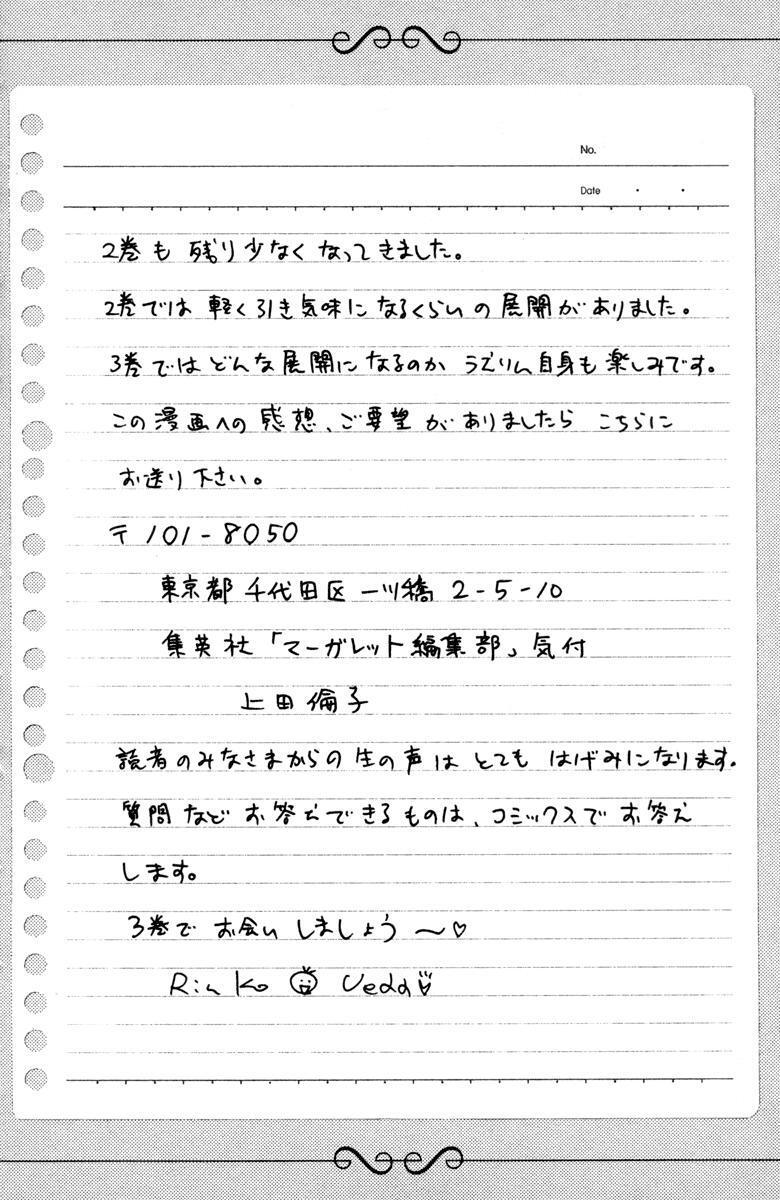 No.
Date ・ ・
2巻も残り少なくなってきました。
2巻では軽く引き気味になるくらいの展開がありました。
3巻ではどんな展開になるのか ラズリん自身も楽しみです。
この漫画への感想、ご要望がありましたら こちらに
お送り下さい。
〒101-8050
東京都千代田区一ツ橋2-5-10
集英社「マーガレット編集部」気付
上田倫子
読者のみなさまからの生の声はとてもはげみになります。
質問などお答えできるものは、コミックスでお答え
します。
3巻でお会いしましょう〜♡
Rinko Ueda